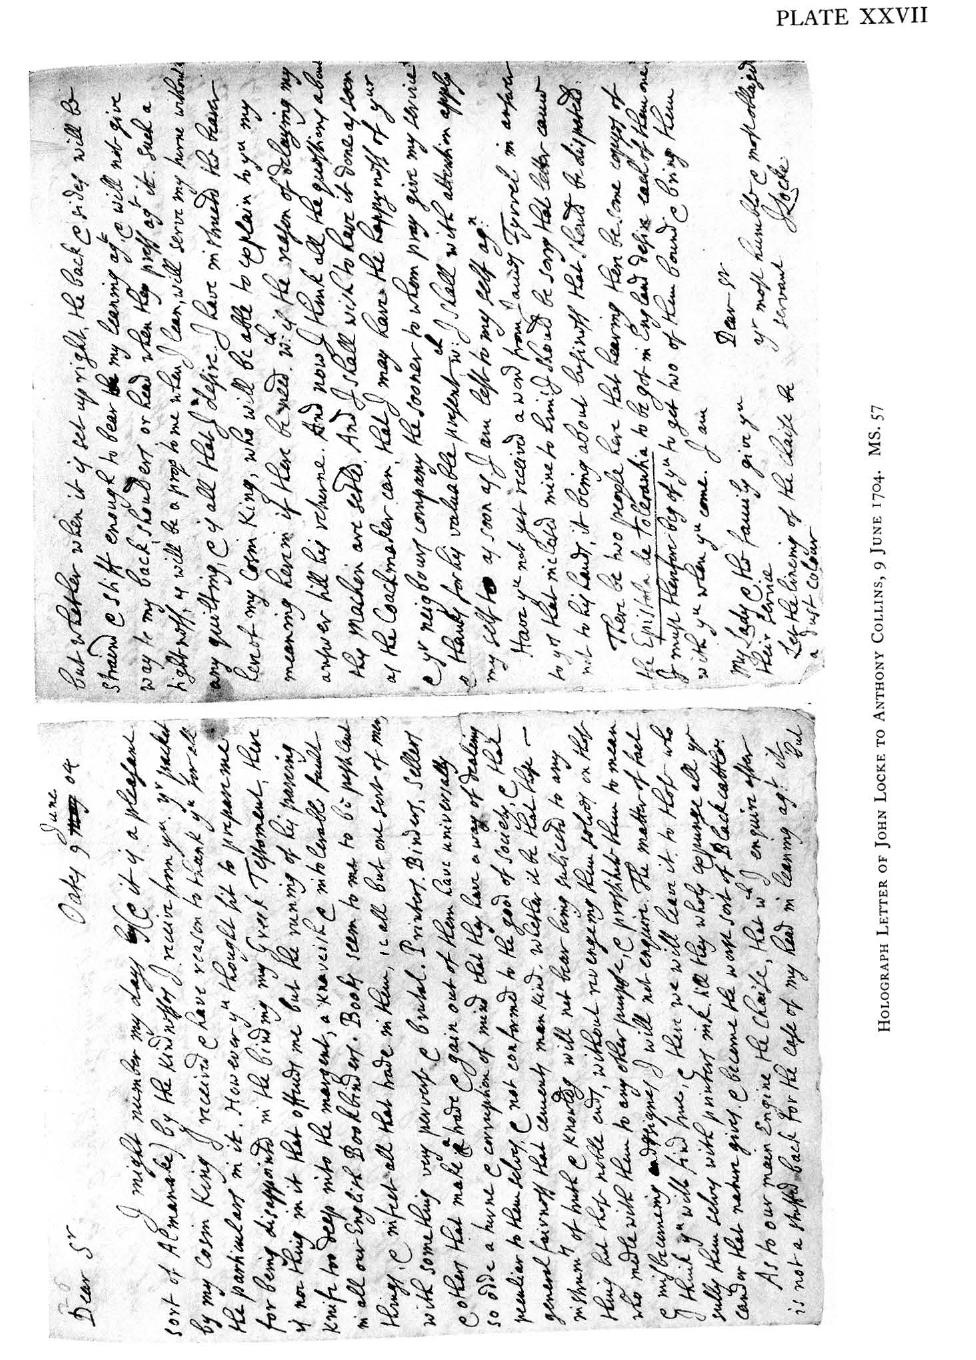 PLATE XXVII
Oates 9 June 04
Dear Sr
I might number my days &c it is a pleasant
sort of Almanake) by the kindnesses I receive from you. yr packet
by my Cosin King I received & have reason to thank you for all
the particulars in it. However you thought fit to prepare me
for being disappointed in the binding my Greek Testament, there
is nothing in it that offends me but the runing of his paring
knife too deep into the margent, a knaveish & intolerable fault
in all our English Bookbinders. Books seem to me to be pestilent
things & infect all that trade in them, i:e all but one sort of men
with something very pervert & brutal. Printers. Binders. Sellers
& others that make a trade & gain out of them have universally
so odde a turne & corruption of mind that they have a way of dealing
peculiar to themselves, & not conformed to the good of society, & that
general fairness that cements man kind. whether it be that these
instruments of truth & knowledg will not bear being subjected to any
thing but those noble ends, without revenging them selves on those
who medle with them to any other purpose, & prostitut them to mean
& misbecoming designes I will not enquire. The matter of fact
I think you will find true, & there we will leave it to those who
sully them selves with printers ink till they wholy expunge all yt
candor that nature gives & become the worst sort of Black cattle.
As to our main Engine the Chaise, that wch I enquire after
is not a stuffed back for the ease of my head in leaning agt it
but
but whether when it is set up right the back & sides will be
strong & stiff enough to bear my leaning agt & will not give
way to my back shoulders or head when they press agt it. Such a
tightness, as will be a prop to me when I lean, will serve my turne without
any quilting, & is all that I desire. I have instructed the bearer
hereof my Cosin King, who will be able to explain to you my
meaning herein if there be need. wch is the reason of delaying my
answer till his returne. And now I think all the questions about
this machin are setled. And I shall wish to have it done as soon
as the Coachmaker can, that I may have the happyness of your
& yr neigbours company the sooner to whom pray give my service
& thanks for his valuable present wch I shall with attention apply
my self to as soon as I am left to my self agn
Have you not yet received a word from James Tyrrel in answer
to yrs that incloasd mine to him. I should be sorry that letter came
not to his hands, it being about businesse that should be dispatched.
There be two people here that hearing there be some copies of
the Epistola de Tolerantia to be got in England desire each of them one.
I must therefor beg of you to get two of them bound & bring them
with you when you come. I am
Dear Sr
yr most humble & most obliged
servant
J Locke
My Lady & the family give you
their service
Let the lineing of the chaise be
a dust colour
HOLOGRAPH LETTER OF JOHN LOCKE TO ANTHONY COLLINS, 9 JUNE 1704. MS. 57